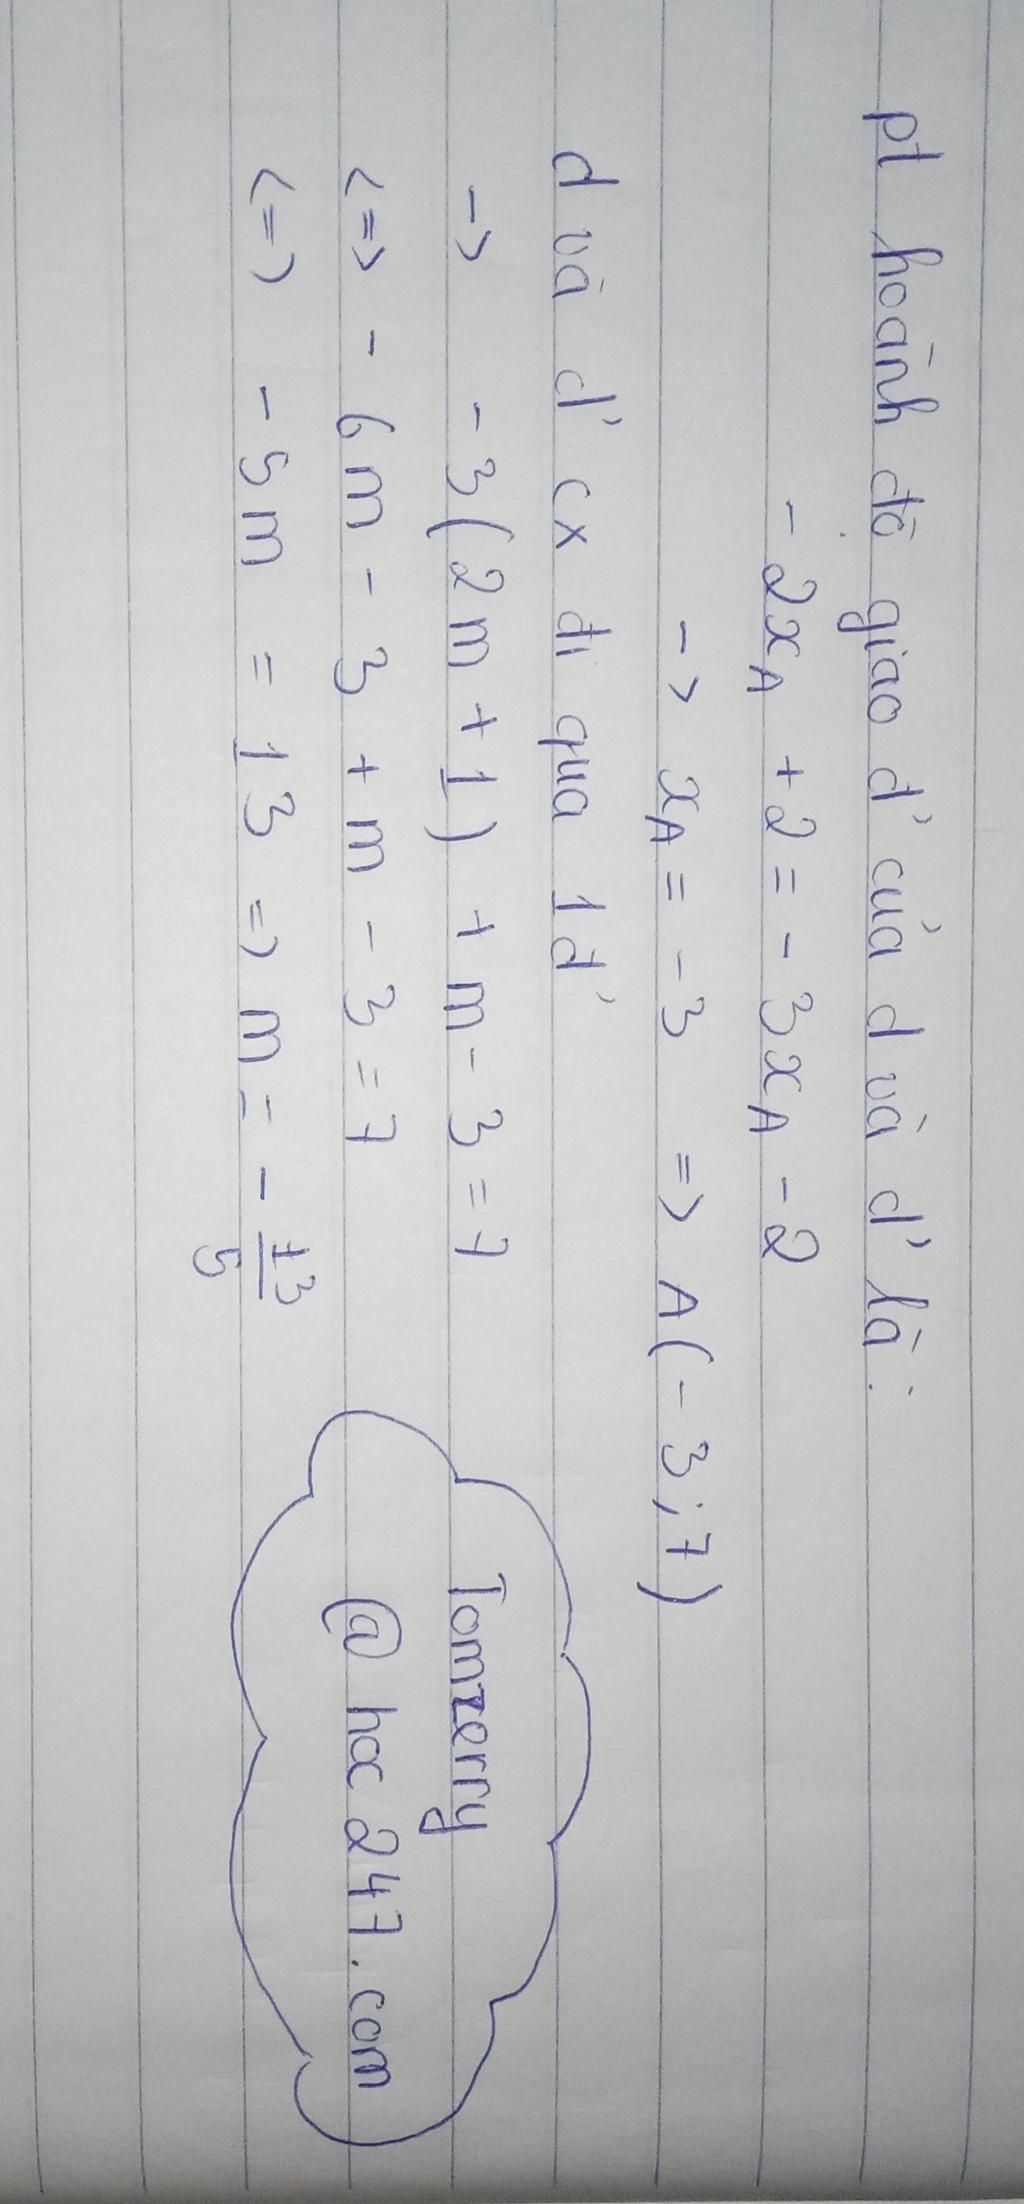 pt hoành độ giao d' của d và d' là:
- 2xA + 2 = - 3xA - 2
-> xA = - 3 => A(- 3; 7)
d và d' cx đi qua 1 d'
-> - 3(2m + 1) + m - 3 = 7
<=> - 6m - 3 + m - 3 = 7
<=> - 5m = 13 => m = - 13/5
Tomzerry
@ hoc 247.com